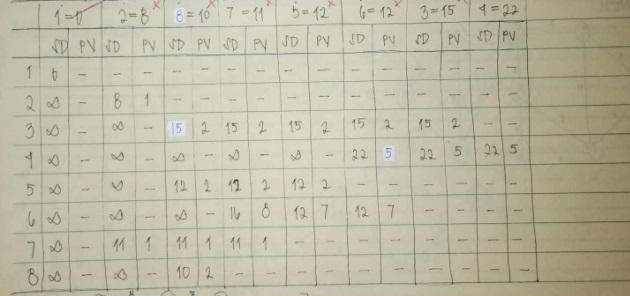 1=0 2=8 8=10 7=11 5=12 6=12 3=15 4=22
SD PV SD PV SD PV SD PV SD PV SD PV SD PV SD PV
1 0 - - - - - - - - - - - - - - -
2 ∞ - 8 1 - - - - - - - - - - - -
3 ∞ - ∞ - 15 2 15 2 15 2 15 2 15 2 - -
4 ∞ - ∞ - ∞ - ∞ - ∞ - 22 5 22 5 22 5
5 ∞ - ∞ - 12 2 12 2 12 2 - - - - - -
6 ∞ - ∞ - ∞ - 16 8 12 7 12 7 - - - -
7 ∞ - 11 1 11 1 11 1 - - - - - - - -
8 ∞ - ∞ - 10 2 - - - - - - - - - -